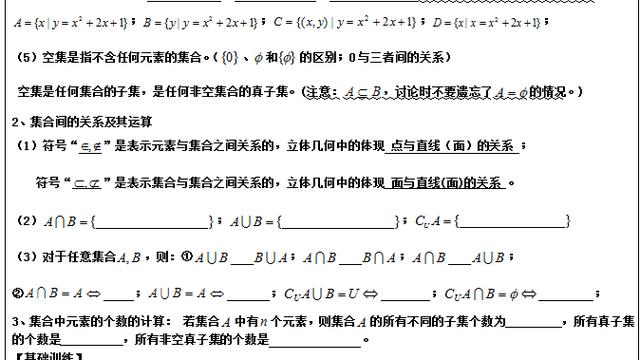 A={x|y=x²+2x+1}；B={y|y=x²+2x+1}；C={(x,y)|y=x²+2x+1}；D={x|x=x²+2x+1}；
（5）空集是指不含任何元素的集合。（{0}、φ和{φ}的区别；0与三者间的关系）
空集是任何集合的子集，是任何非空集合的真子集。（注意：A⊆B，讨论时不要遗忘了A=φ的情况。）
2、集合间的关系及其运算
（1）符号“∈,∉”是表示元素与集合之间关系的，立体几何中的体现 点与直线（面）的关系 ；
符号“⊂,⊄”是表示集合与集合之间关系的，立体几何中的体现 面与直线(面)的关系 。
（2）A∩B={____________________}；A∪B={____________________}；C_U A={____________________}
（3）对于任意集合A,B，则：①A∪B___B∪A；A∩B___B∩A；A∩B___A∪B；
②A∩B=A⇔____；A∪B=A⇔______；C_U A∪B=U⇔_______；C_U A∩B=φ⇔________；
3、集合中元素的个数的计算： 若集合A中有n个元素，则集合A的所有不同的子集个数为________，所有真子集
的个数是_________，所有非空真子集的个数是____________。
【基础训练】